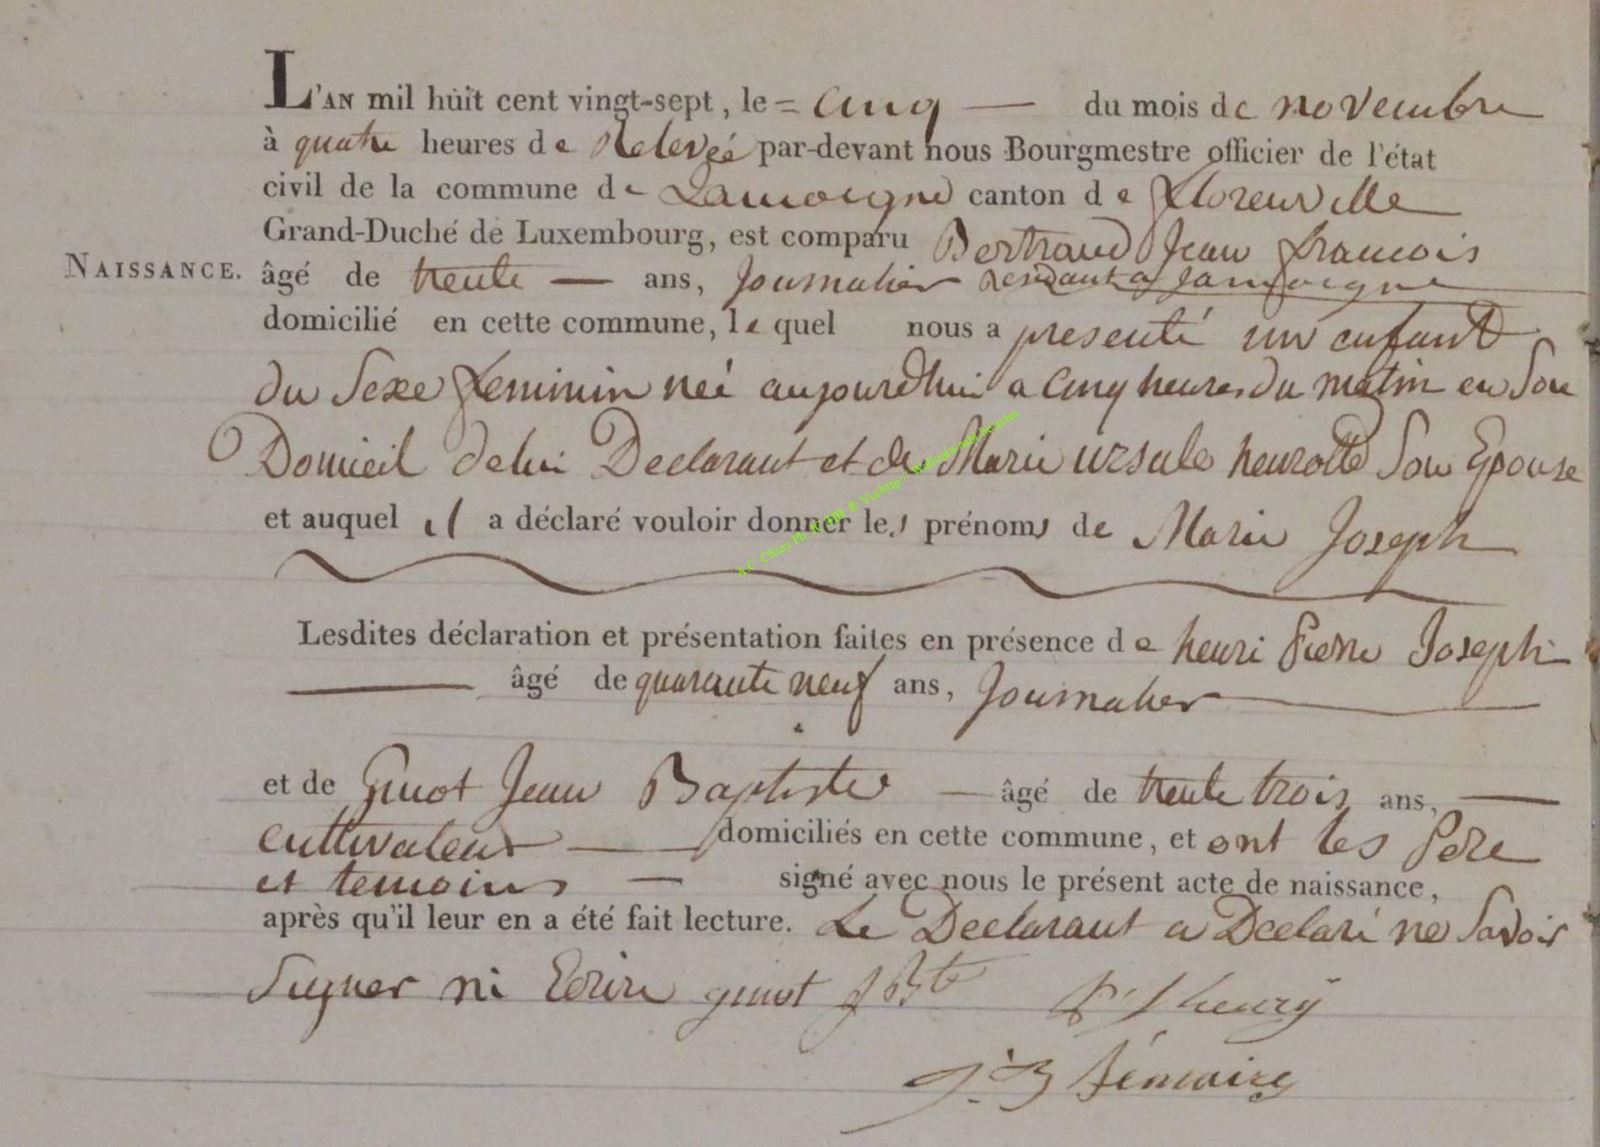 L'AN mil huit cent vingt-sept, le = cinq — du mois de novembre
à quatre heures de Relevéé par-devant nous Bourgmestre officier de l'état
civil de la commune de Jamoigne canton de florenville
Grand-Duché de Luxembourg, est comparu Bertrand Jean francois
NAISSANCE. âgé de trente — ans, Journalier residant a Jamoigne
domicilié en cette commune, le quel nous a presenté un enfant
du Sexe feminin neé aujourdhui a cinq heures du matin en Son
Domicil de lui Declarant et de Marie ursule henrotte Son Epouse
et auquel il a déclaré vouloir donner les prénoms de Marie Joseph
Lesdites déclaration et présentation faites en présence de henri pierre Joseph
— âgé de quarante neuf ans, Journalier
et de Ginot Jean Baptiste — âgé de trente trois ans, —
cultivateur — domiciliés en cette commune, et ont les pere
et temoins — signé avec nous le présent acte de naissance,
après qu'il leur en a été fait lecture. Le Declarant a Declaré ne Savoir
Signer ni Ecrire ginot J Bte P J henry
J. B Lémaire